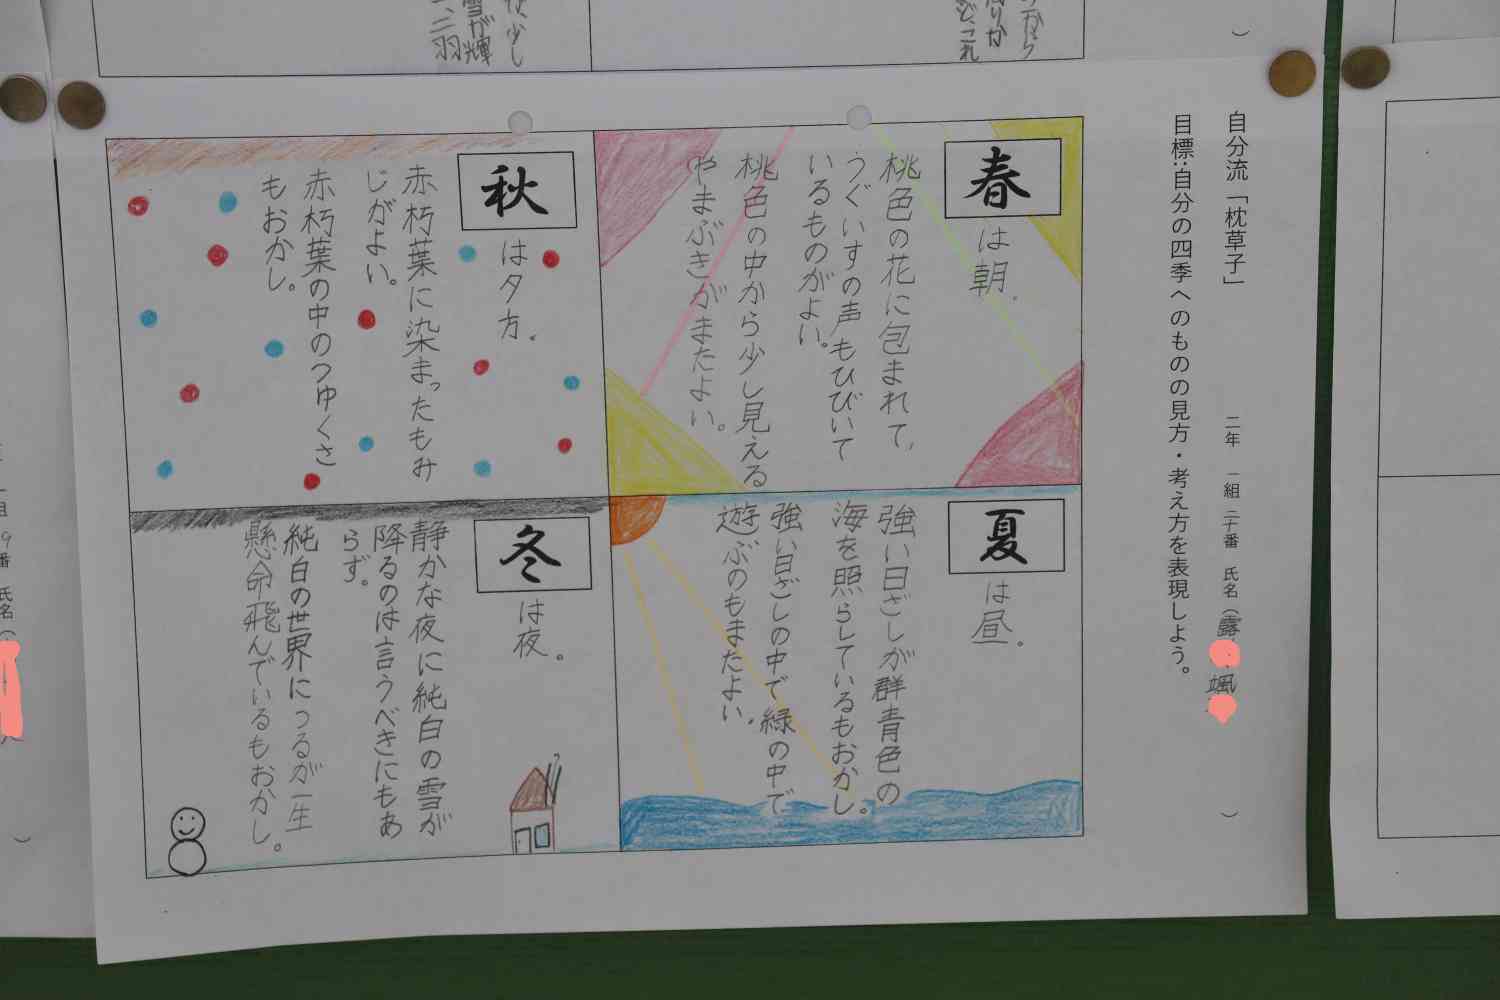 自分流「枕草子」
二年 一組 二十番 氏名（露 颯 ）
目標：自分の四季へのものの見方・考え方を表現しよう。
春は朝。
桃色の花に包まれて、
うぐいすの声もひびいて
いるものがよい。
桃色の中から少し見える
やまぶきがまたよい。
夏は昼。
強い日ざしが群青色の
海を照らしているもおかし。
強い日ざしの中で緑の中で
遊ぶのもまたよい。
秋は夕方。
赤朽葉に染まったもみ
じがよい。
赤朽葉の中のつゆくさ
もおかし。
冬は夜。
静かな夜に純白の雪が
降るのは言うべきにもあ
らず。
純白の世界につるが一生
懸命飛んでいるもおかし。
少し
雪が輝
二羽
これ
番 氏名（